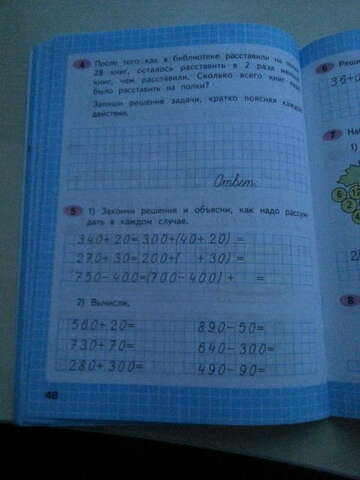 4 После того как в библиотеке расставили на полки
28 книг, осталось расставить в 2 раза меньше
книг, чем расставили. Сколько всего книг надо
было расставить на полки?
Запиши решение задачи, кратко поясняя каждое
действие.
Ответ:
5 1) Закончи решения и объясни, как надо рассуж-
дать в каждом случае.
340+20=300+(40+20) =
270+30=200+( +30) =
750-400=(700-400)+ =
2) Вычисли.
560+20= 890-50=
730+70= 640-300=
280+300= 490-90=
48
6 Реши
36+
7
1)
2)
8